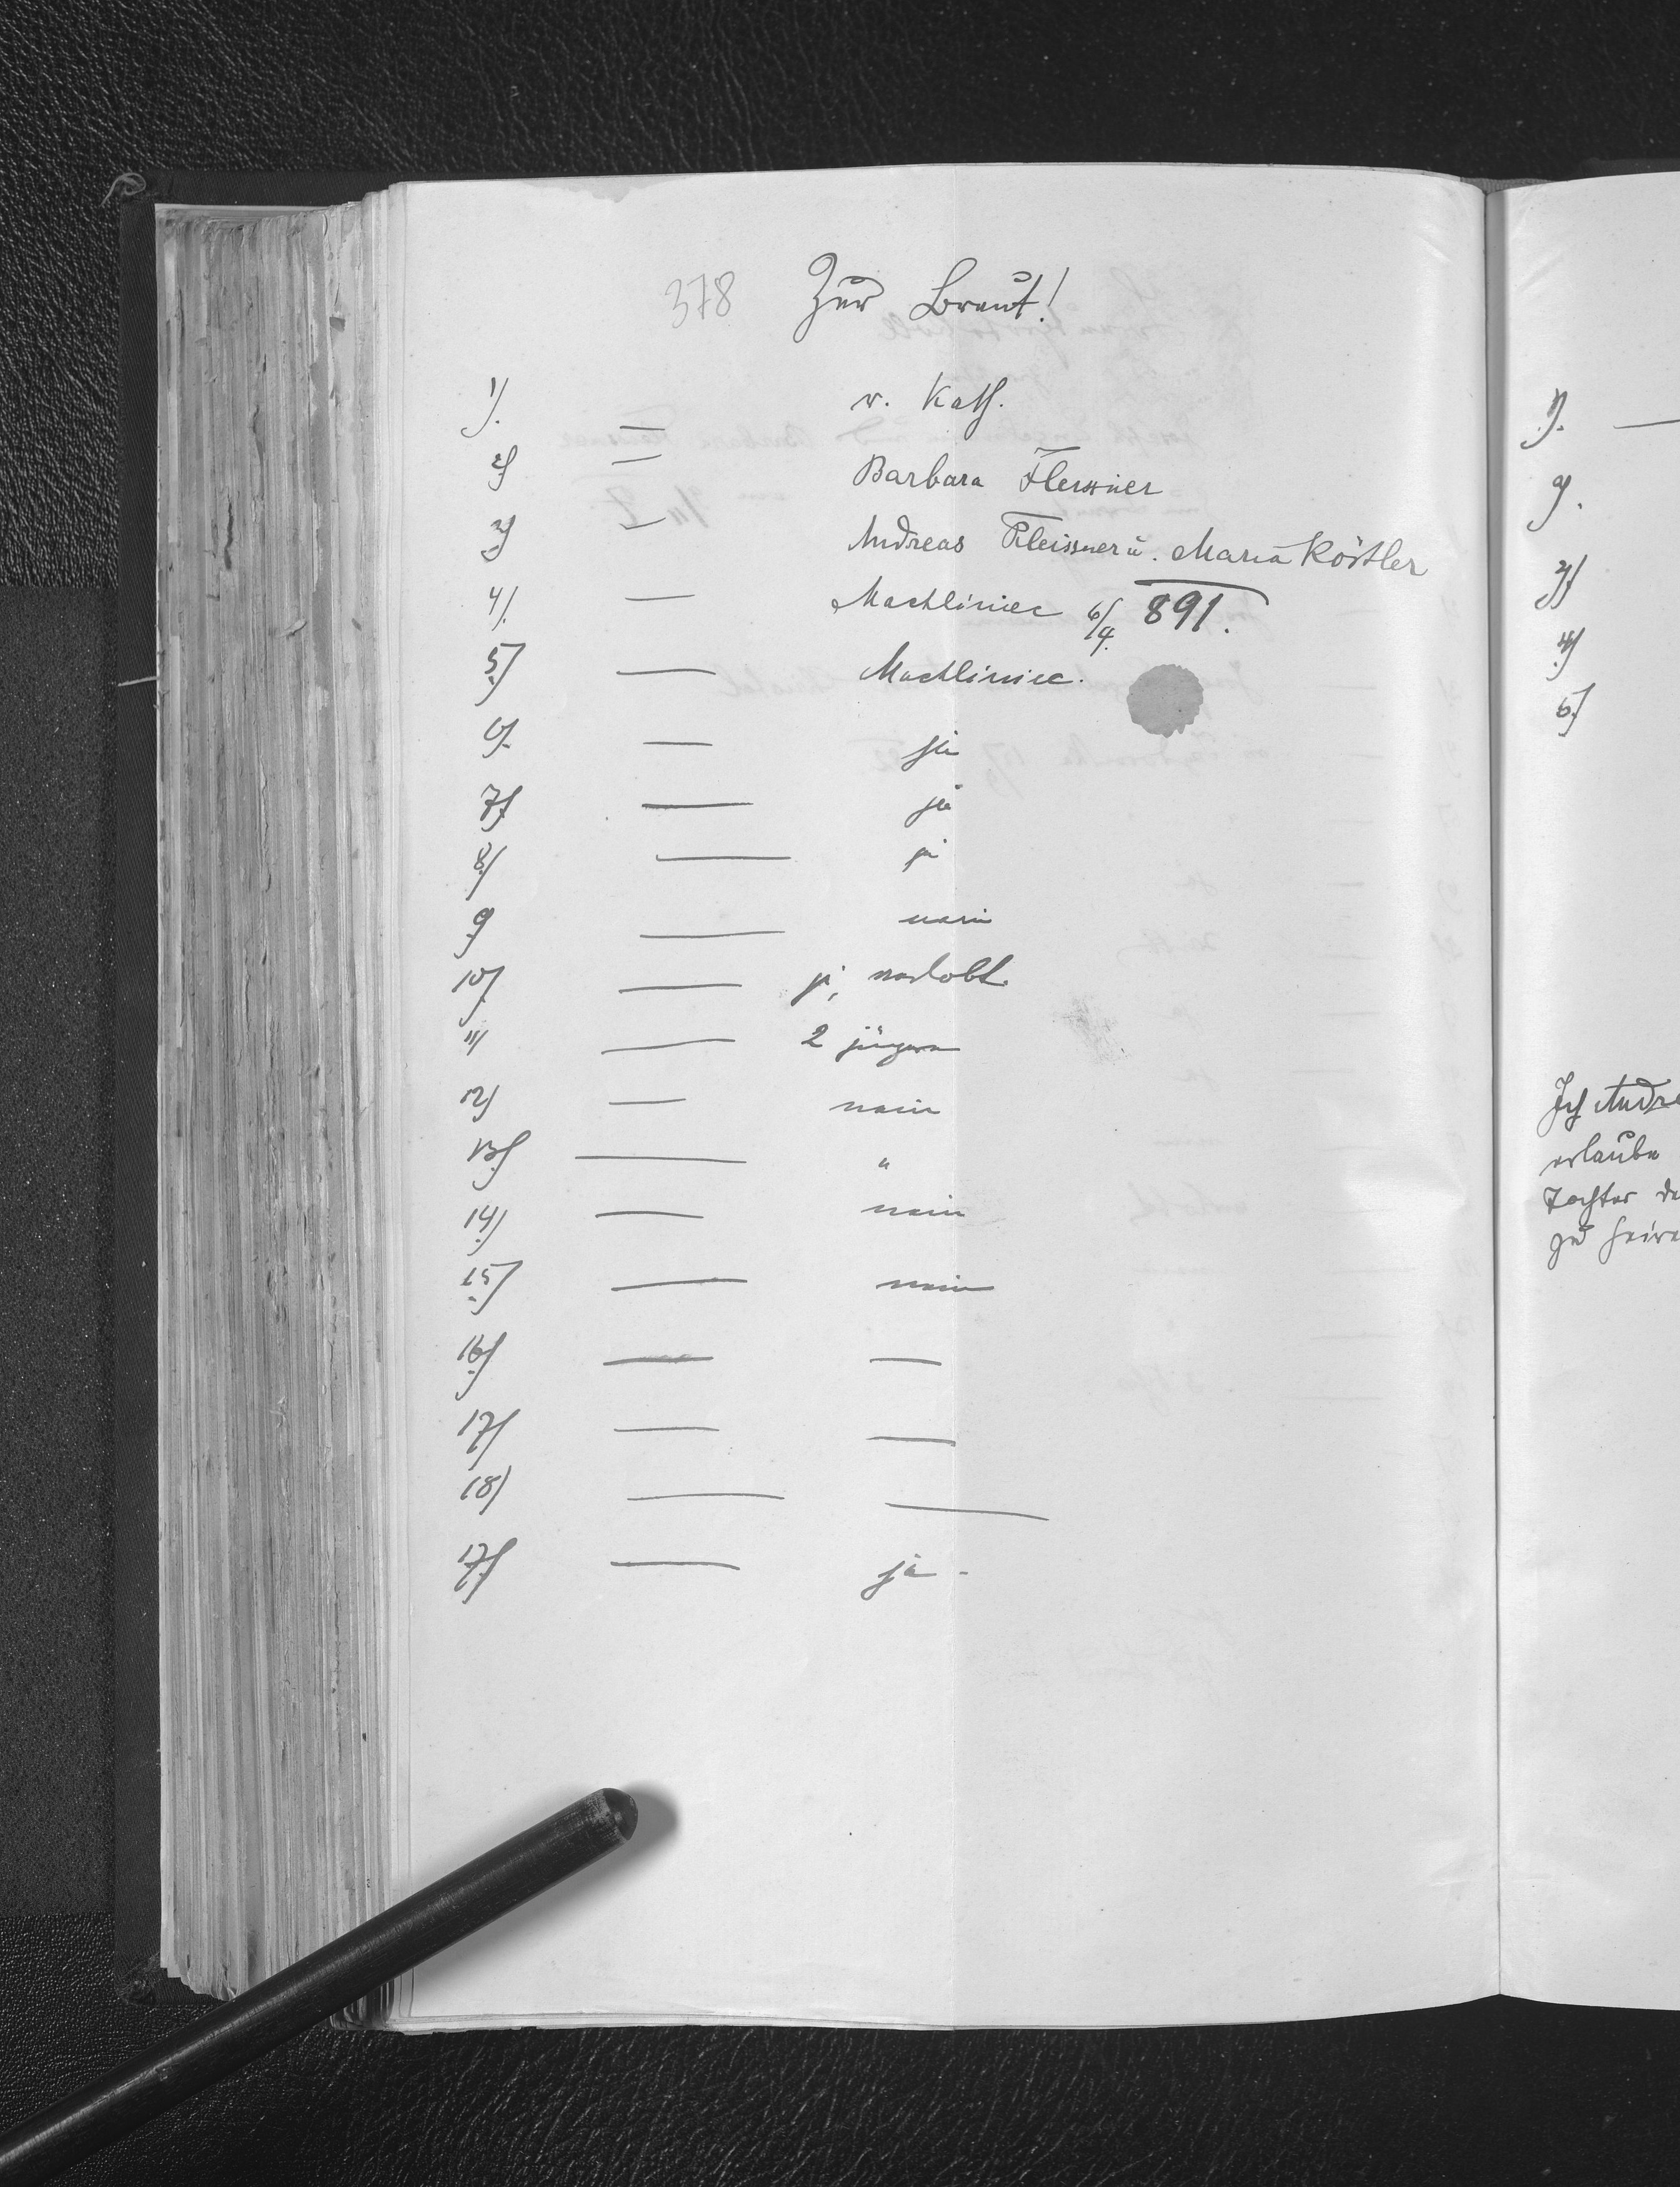 378 Zur Braut!
1). — r. Kath.
2) — Barbara Fleissner
3) — Andreas Fleissner u. Maria Köstler
4). — Machliniec 6/4. 891.
5) — Machliniec.
6). — ja
7) — ja
8) — ja
9 — nein
10) — ja, verlobt.
11) — 2 jüngere
12) — nein
13) — "
14) — nein
15) — nein
16) — —
17) — —
18) — —
17) — ja -
1). —
2).
3)
4)
5)
Ich Andre
erlaube
Tochter
zu heira